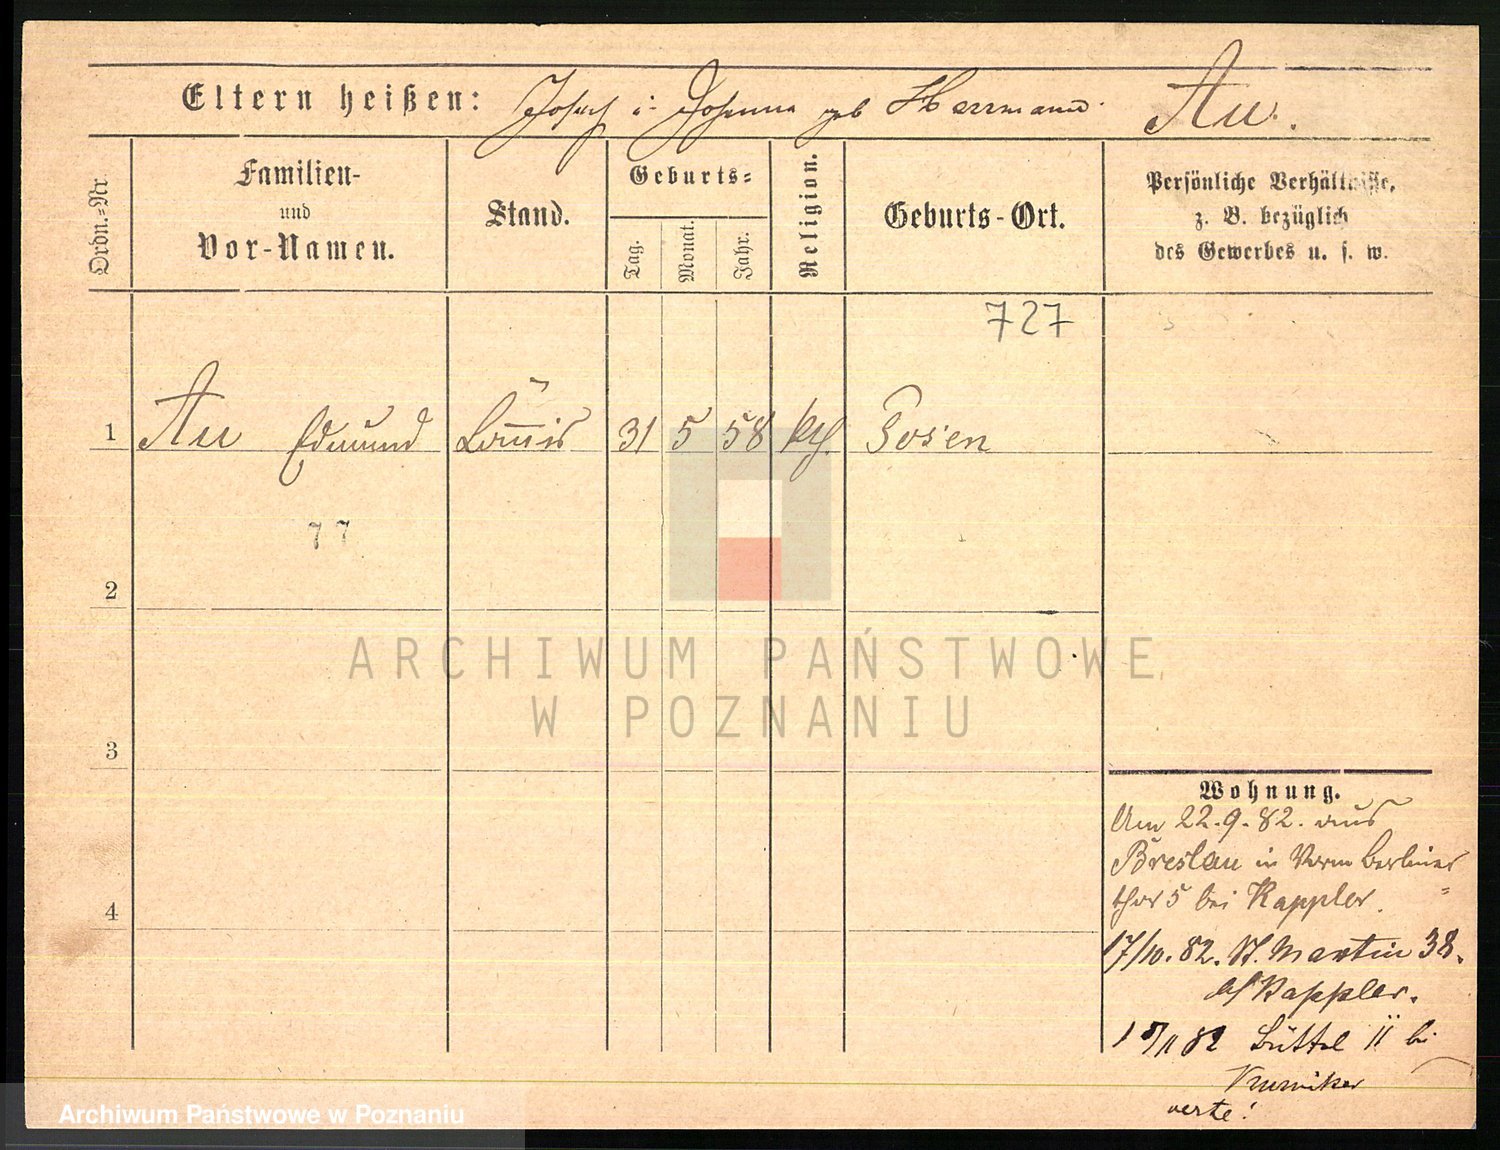 Eltern heißen: Joseph u. Johanna geb Herrmann. Au.
Ordn.-Nr.
Familien-
und
Vor-Namen.
Stand.
Geburts-
Tag.
Monat.
Jahr.
Religion.
Geburts-Ort.
Persönliche Verhältnisse,
z. B. bezüglich
des Gewerbes u. s. w.
727
1 Au Edmund Com̅is 31 5 58 kth. Posen
77
2
3
4
ARCHIWUM PAŃSTWOWE
W POZNANIU
Wohnung.
Am 22.9.82. aus
Breslau in Berliner
thor 5 bei Kappler.
17/10.82. St. Martin 38.
Kappler.
15/11 82 Büttel 11 bei
verte!
Archiwum Państwowe w Poznaniu